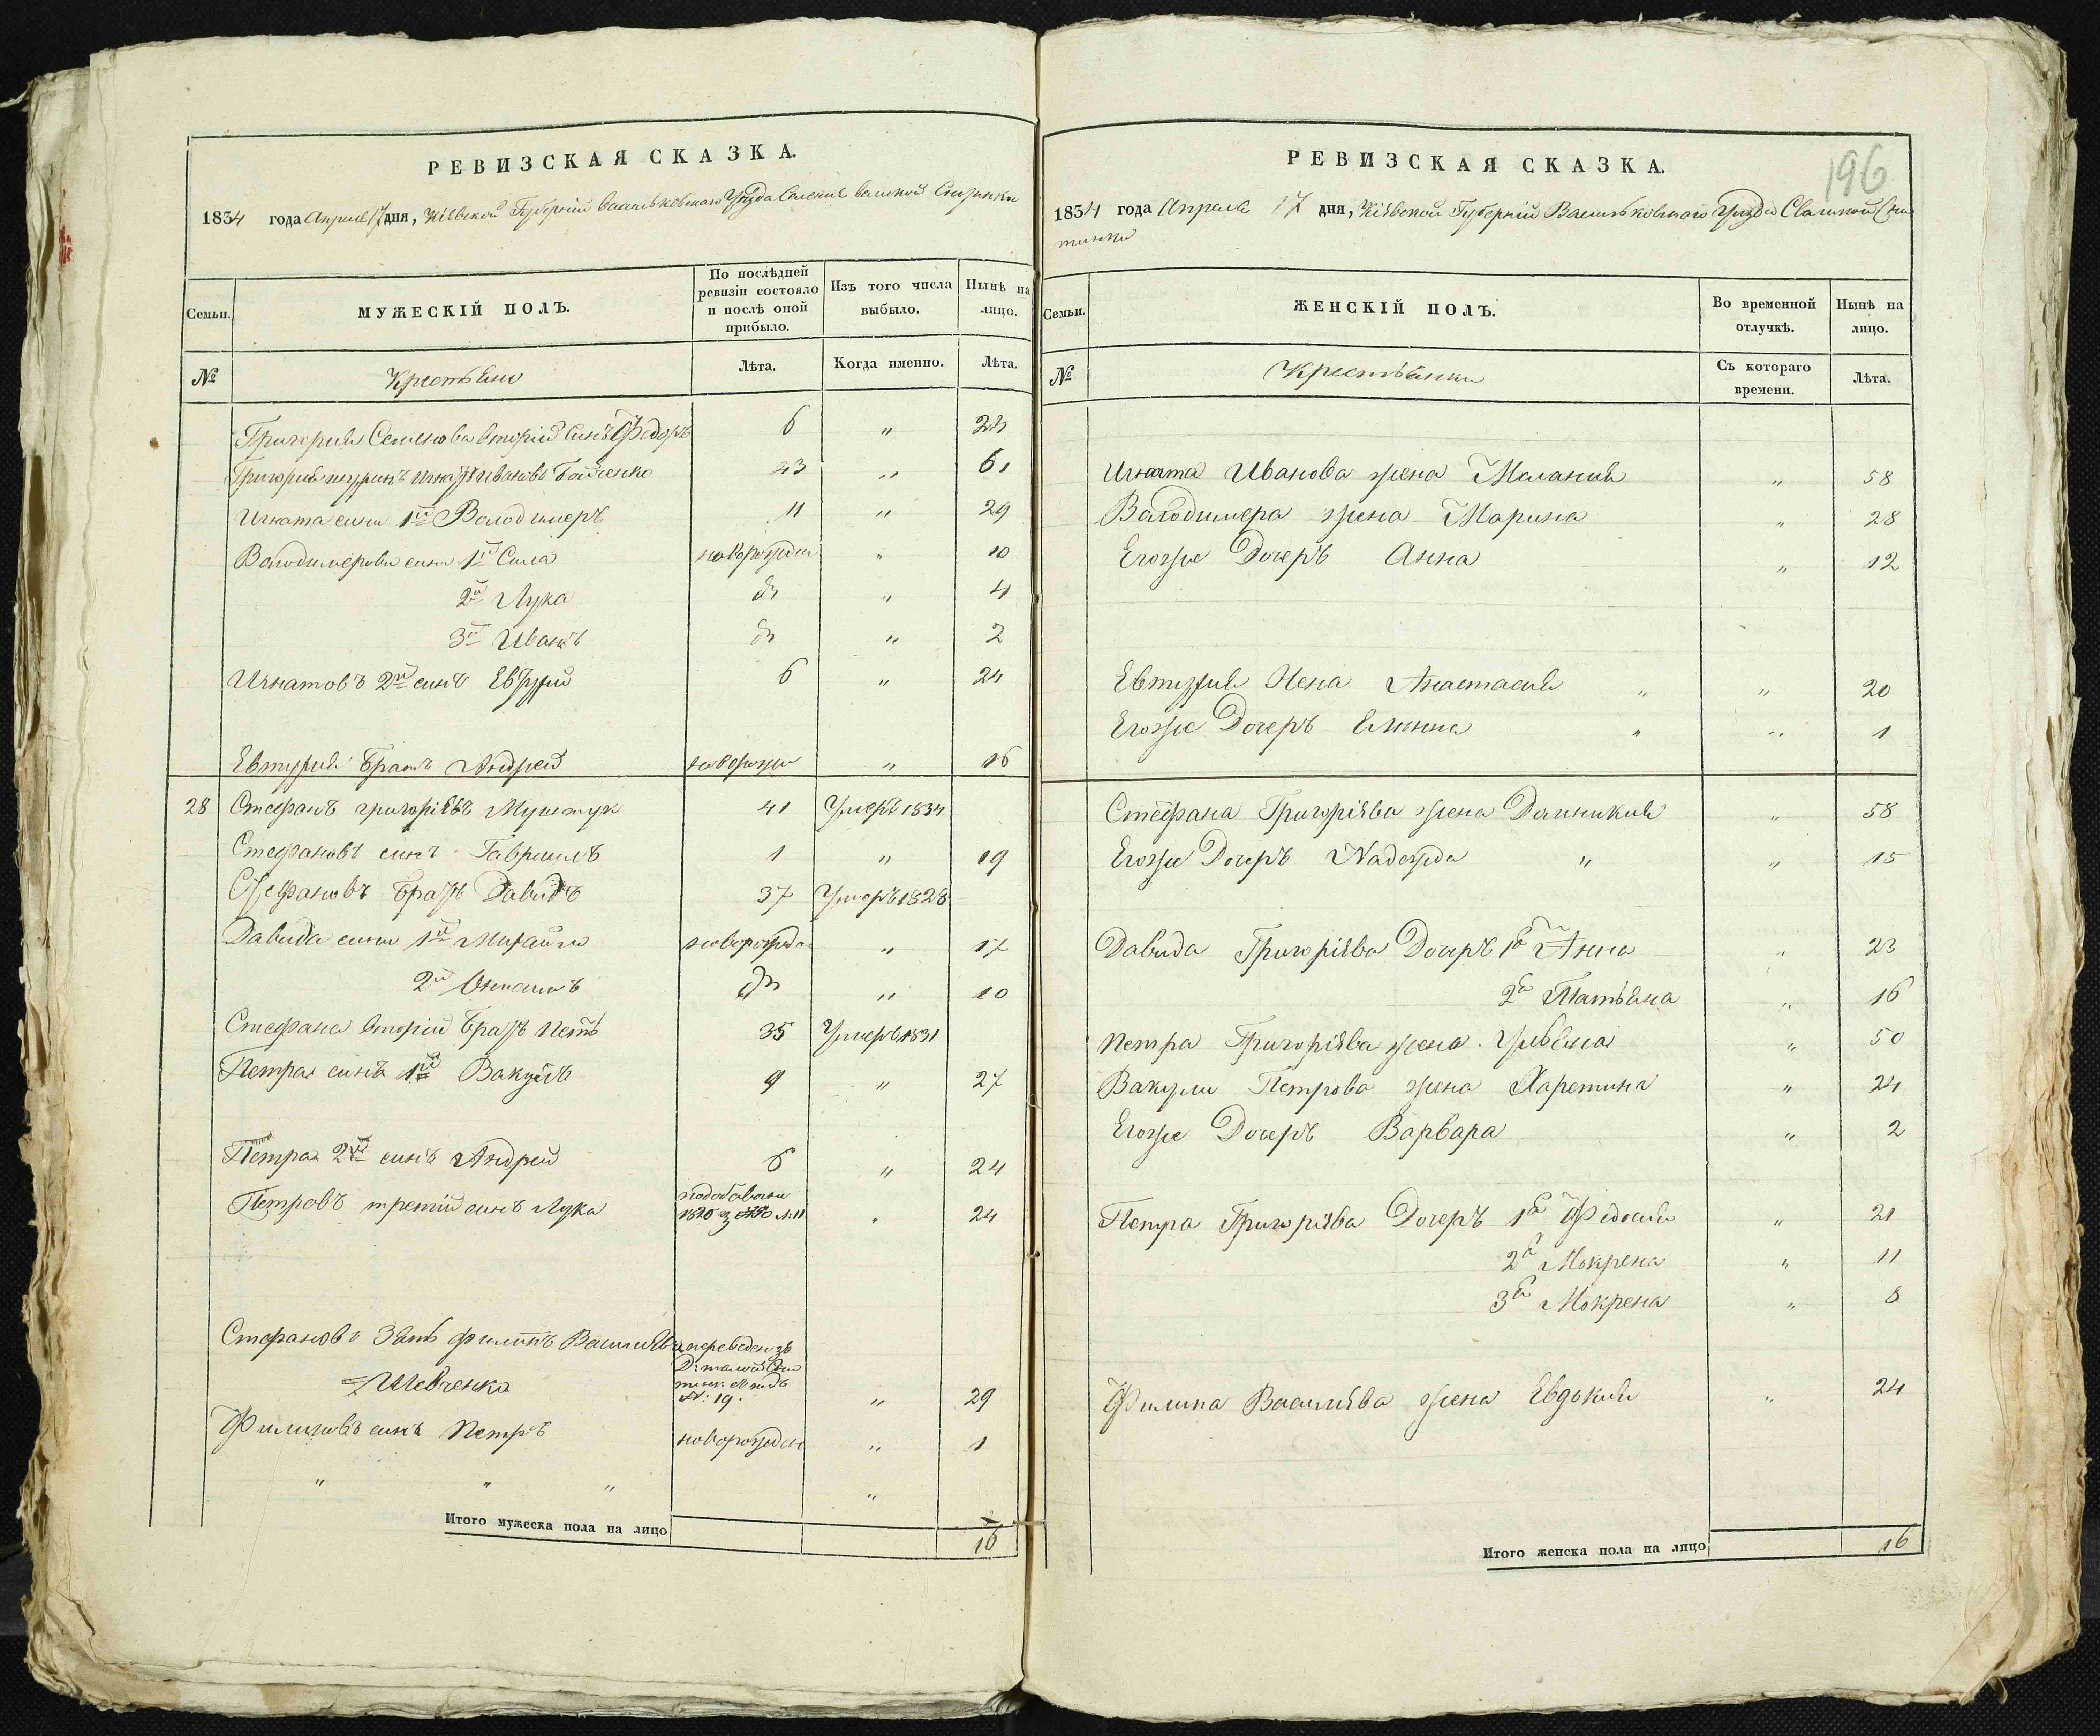 РЕВИЗСКАЯ СКАЗКА.
1834 года Апреля 17 дня, Кіевской Губерній Васильковского Уезда Селения великой Снитинки
Семьи. МУЖЕСКІЙ ПОЛЪ. По послѣдней ревизіи состояло и послѣ оной прибыло. Изъ того числа выбыло. Нынѣ на лицо.
№ Крестьяне Лѣта. Когда именно. Лѣта.
Григория Семенова вторій синъ Федоръ 6 " 24
Григория Игнатъ Ивановъ 43 " 61
Игната сини 1й Володимеръ 11 " 29
Володимерови сини 1й Сила новорожден " 10
2й Лука " 4
3й Иванъ " 2
Игнатовъ 2й синъ Евтухій 6 " 24
Евтухия братъ Андрей новорожден " 16
28 Стефанъ григоріевъ 41 Умеръ 1834
Стефановъ синъ Гавриилъ 1 " 19
Стефановъ братъ Давидъ 37 Умеръ 1828
Давида сини 1й Михайло новорожден " 17
2й " 10
Стефана вторій братъ Петръ 35 Умеръ 1831
Петра синъ 1й Вакула 9 " 27
Петра 2й синъ Андрей 6 " 24
Петровъ третій синъ Лука " 24
Стефановъ Зять филипъ Василіевъ переведен зъ
Шевченко № 19. " 29
Филиповъ синъ Петръ новорожден " 1
" " " "
Итого мужеска пола на лицо 16
196
РЕВИЗСКАЯ СКАЗКА.
1834 года Апреля 17 дня, Кіевской Губерній Васильковского Уезда С Великой Сни
тинки
Семьи. ЖЕНСКІЙ ПОЛЪ. Во временной отлучкѣ. Нынѣ на лицо.
№ Крестьянки Съ котораго времени. Лѣта.
Игната Иванова жена Мелания " 58
Володимера жена Марина " 28
Егоже Дочеръ Анна " 12
Евтухия Жена Анастасия " " 20
Егоже Дочеръ " " 1
Стефана Григоріева жена Домникия " 58
Егоже Дочеръ Надежда " " 15
Давида Григоріева Дочеръ 1а Анна " 23
2а Татьяна " 16
Петра Григоріева жена Ульяна " 50
Вакули Петрова жена Харетина " 24
Егоже Дочеръ Варвара " 2
Петра Григоріева Дочеръ 1а Федосия " 21
2а Мокрена " 11
3а Мокрена " 8
Филипа Василиева жена Евдокия " 24
Итого женска пола на лицо 16